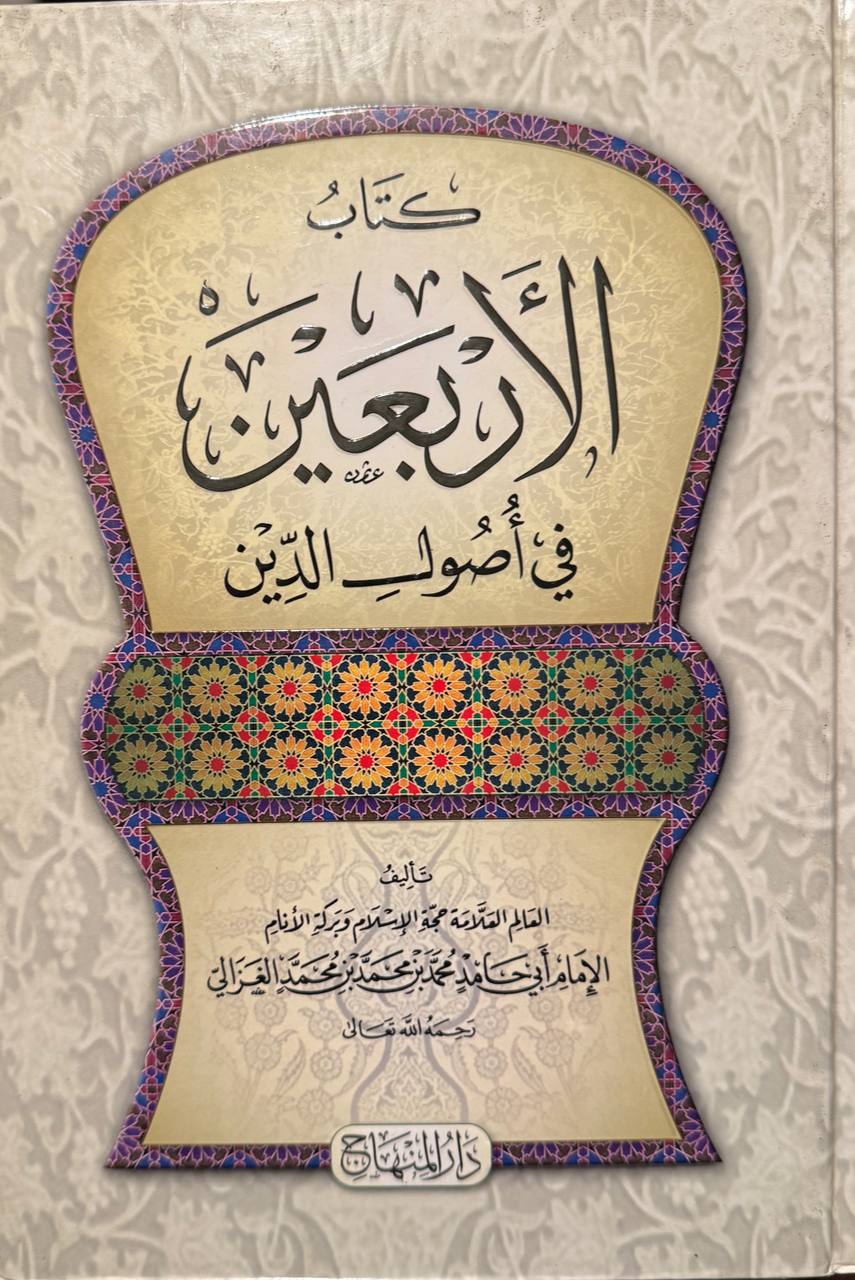 كتَابُ
الأَرْبَعَيْن
في أُصُولِ الدِّين
تَأليفُ
العَالِم العَلَّامَة حجّة الإِسْلَام وَبَرَكة الأَنَام
الإِمَام أَبي حَامِدٍ مُحَمَّد بْن مُحَمَّد بْن مُحَمَّد الغَزَاليّ
رَحِمَهُ اللَّه تَعَالىٰ
دَارُ المِنْهَاج